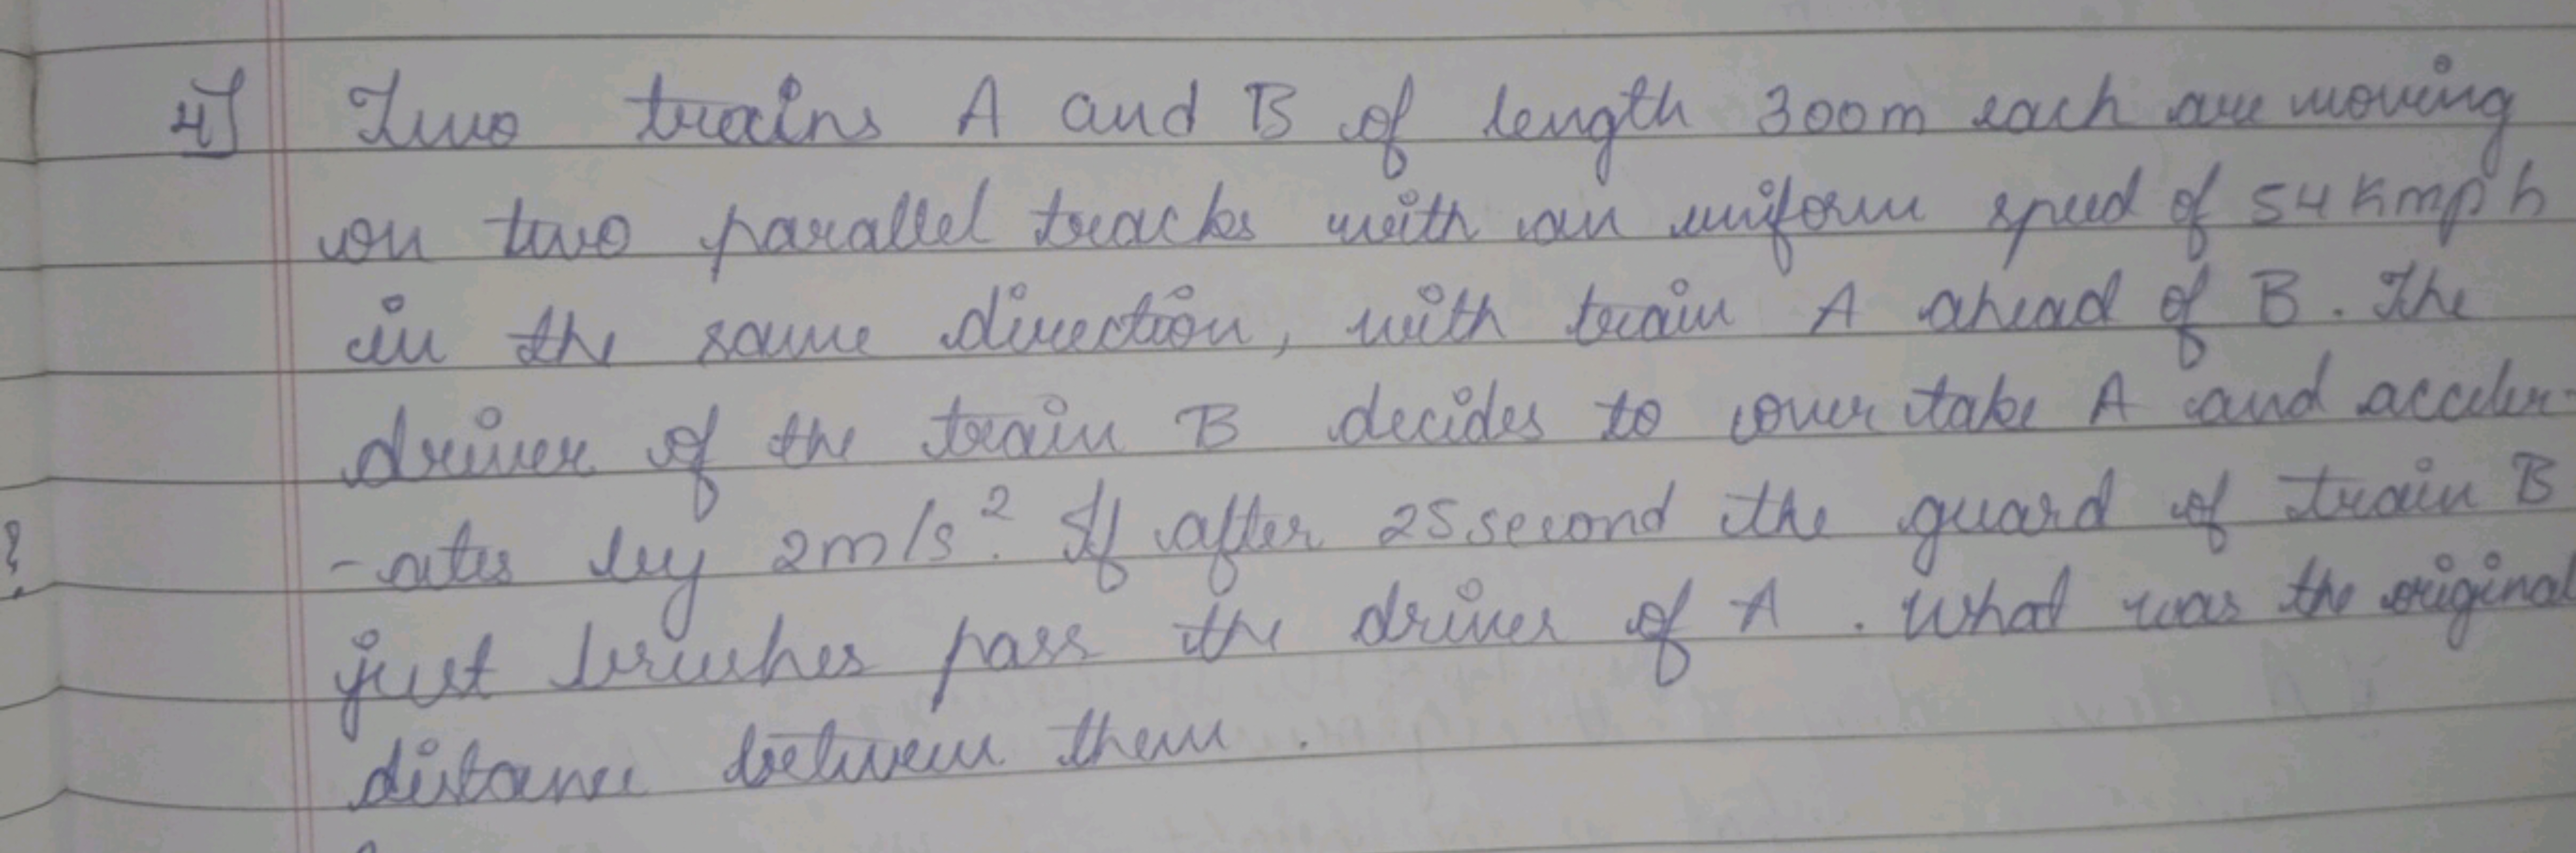 4] Two trains A and B of length 300m each are moving
on two parallel tracks with an uniform speed of 54 kmph
in the same direction, with train A ahead of B. The
driver of the train B decides to over take A and acceler-
?
-ates by 2m/s². If after 25 second the guard of train B
just brushes pass the driver of A. What was the original
distance between them.